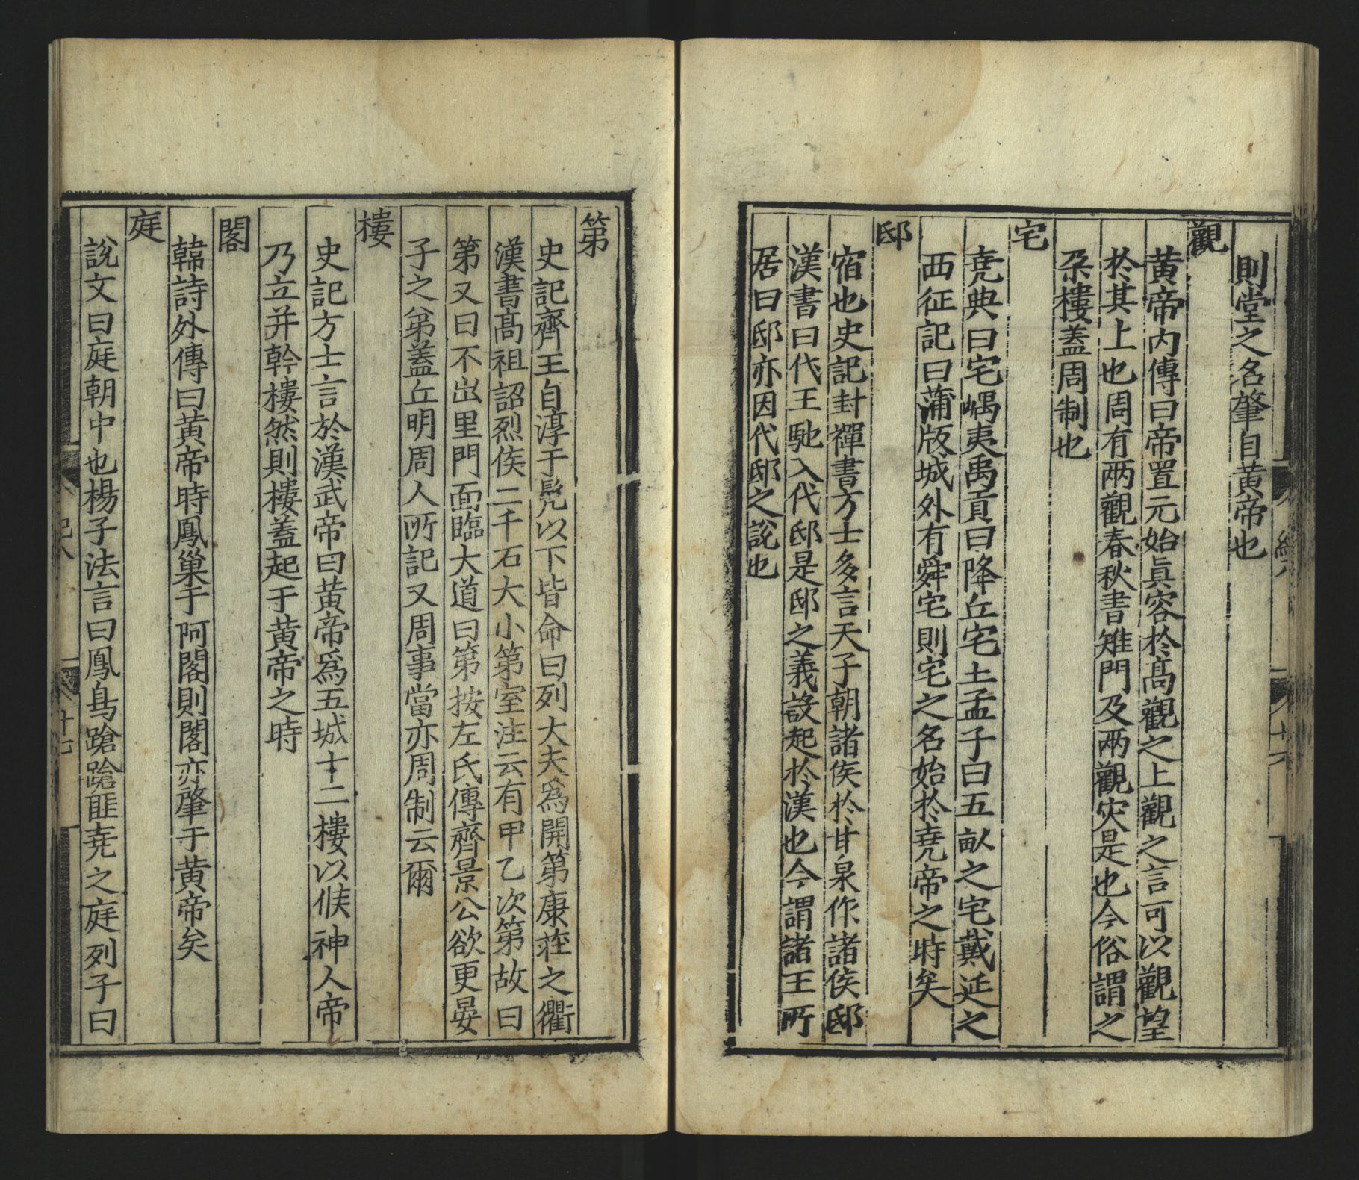 則堂之名肇自黄帝也
觀
黄帝内傳曰帝置元始眞容於髙觀之上觀之言可以觀望
於其上也周有兩觀春秋書雉門及兩觀灾是也今俗謂之
朶樓蓋周制也
宅
堯典曰宅嵎夷禹貢曰降丘宅土孟子曰五畝之宅戴延之
西征記曰蒲版城外有舜宅則宅之名始於堯帝之時矣
邸
宿也史記封禪書方士多言天子朝諸侯於甘泉作諸侯邸
漢書曰代王馳入代邸是邸之義設起於漢也今謂諸王所
居曰邸亦因代邸之說也
第
史記齊王自淳于髡以下皆命曰列大夫為開第康莊之衢
漢書髙祖詔烈侯二千石大小第室注云有甲乙次第故曰
第又曰不出里門面臨大道曰第按左氏傳齊景公欲更晏
子之第蓋丘明周人所記又周事當亦周制云爾
樓
史記方士言於漢武帝曰黄帝爲五城十二樓以候神人帝
乃立井幹樓然則樓蓋起于黄帝之時
閣
韓詩外傳曰黄帝時鳳巢于阿閣則閣亦肇于黄帝矣
庭
說文曰庭朝中也楊子法言曰鳳鳥蹌蹌匪堯之庭列子曰